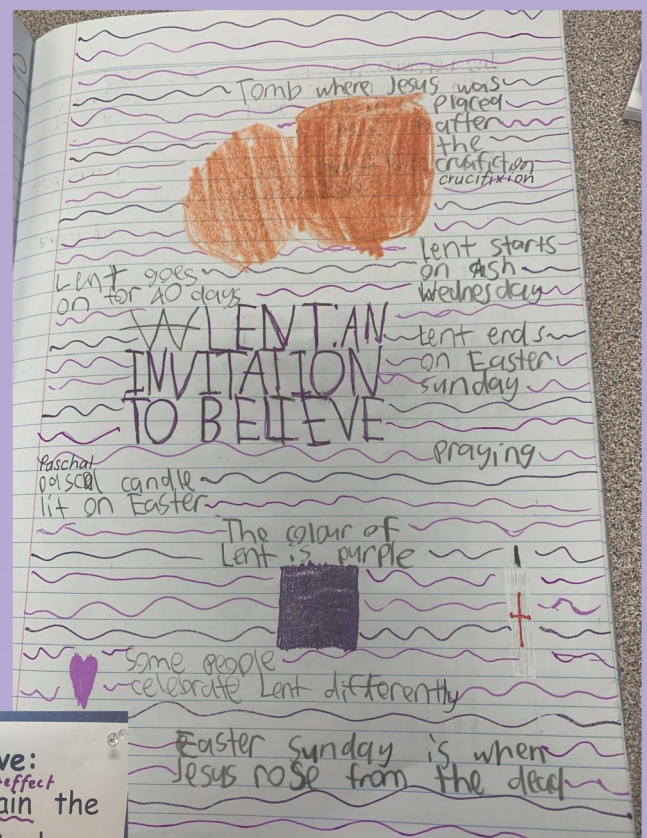 Tomb where Jesus was
placed
after
the
crusifiction
crucifixion
Lent goes
on for 40 days
Lent starts
on Ash
Wednesday
W LENT: AN
INVITATION
TO BELIEVE
Lent ends
on Easter
sunday
praying
Paschal
pascal candle
lit on Easter
The colour of
Lent is purple
Some people
celebrate Lent differently
Easter sunday is when
Jesus rose from the dead
ve:
effect
ain the